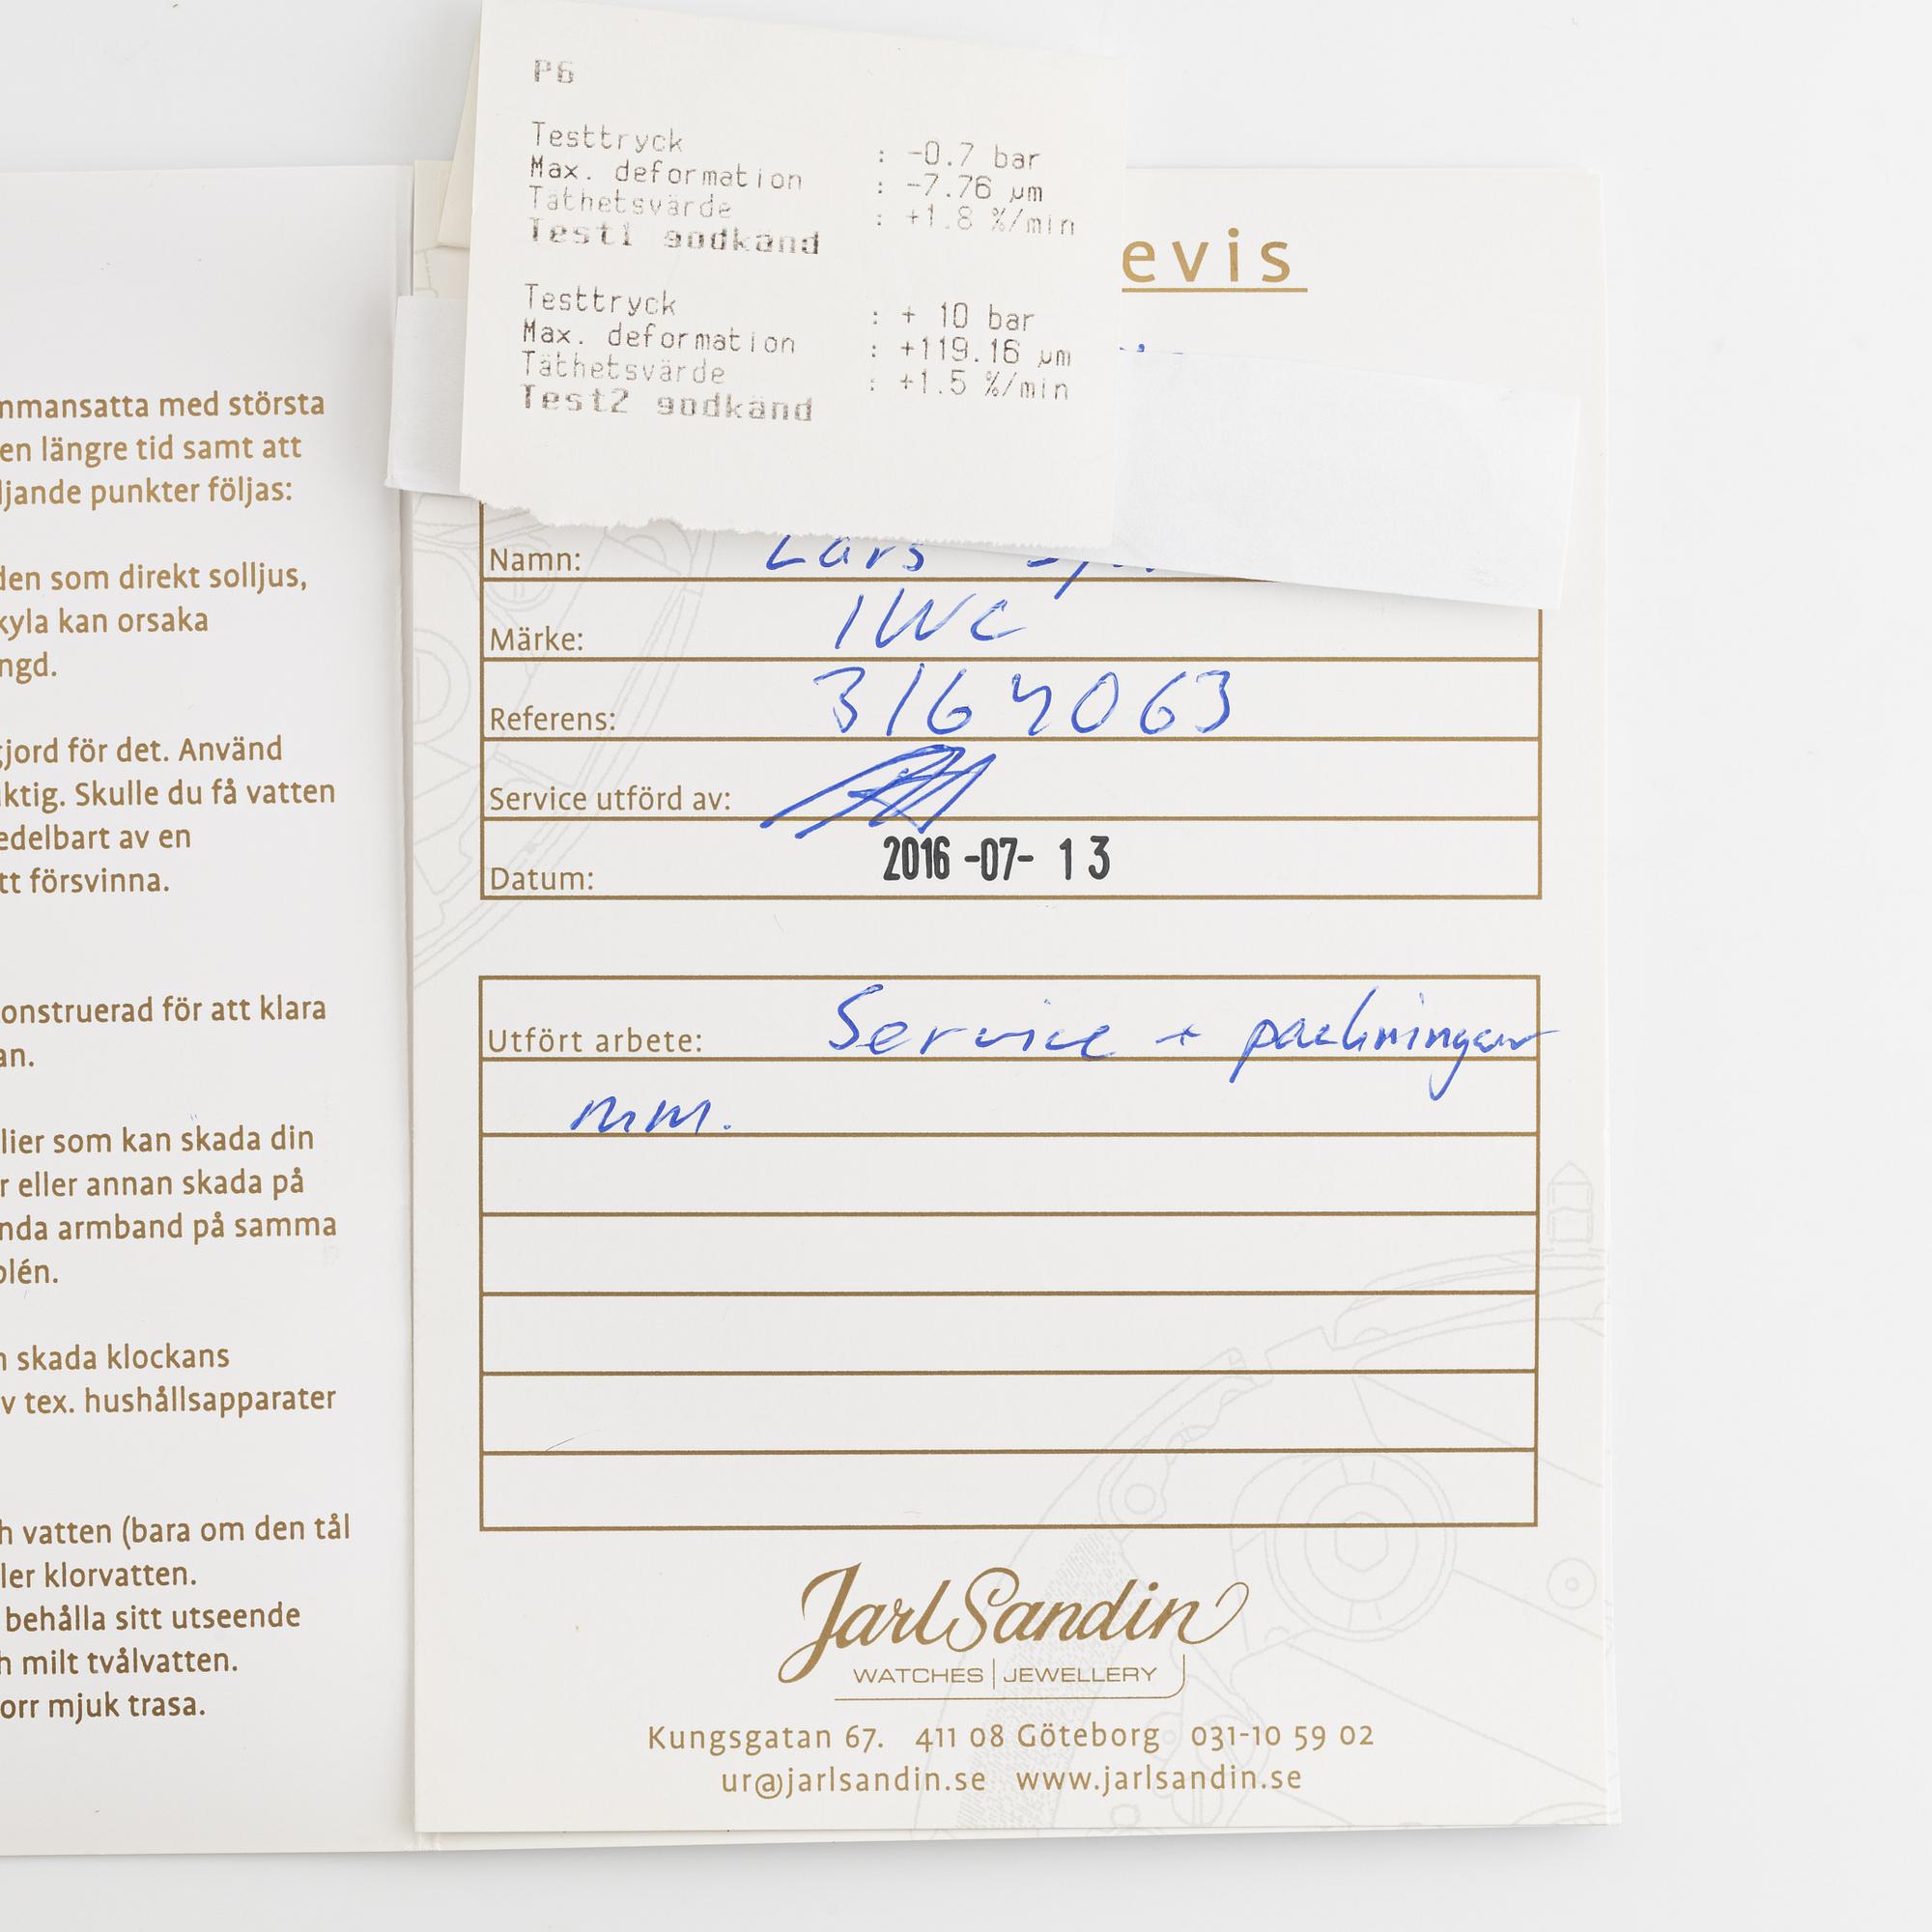 P6
Testtryck : -0.7 bar
Max. deformation : -7.76 µm
Täthetsvärde : +1.8 %/min
Test1 godkänd
Testtryck : + 10 bar
Max. deformation : +119.16 µm
Täthetsvärde : +1.5 %/min
Test2 godkänd
evis
mmansatta med största
en längre tid samt att
ljande punkter följas:
den som direkt solljus,
kyla kan orsaka
ngd.
gjord för det. Använd
ktig. Skulle du få vatten
edelbart av en
tt försvinna.
onstruerad för att klara
an.
lier som kan skada din
r eller annan skada på
nda armband på samma
plén.
n skada klockans
v tex. hushållsapparater
h vatten (bara om den tål
ler klorvatten.
behålla sitt utseende
h milt tvålvatten.
orr mjuk trasa.
Namn: Lars
Märke: IWC
Referens: 3164063
Service utförd av:
Datum: 2016-07-13
Utfört arbete: Service + packningar
mm.
Jarl Sandin
WATCHES | JEWELLERY
Kungsgatan 67. 411 08 Göteborg 031-10 59 02
ur@jarlsandin.se www.jarlsandin.se